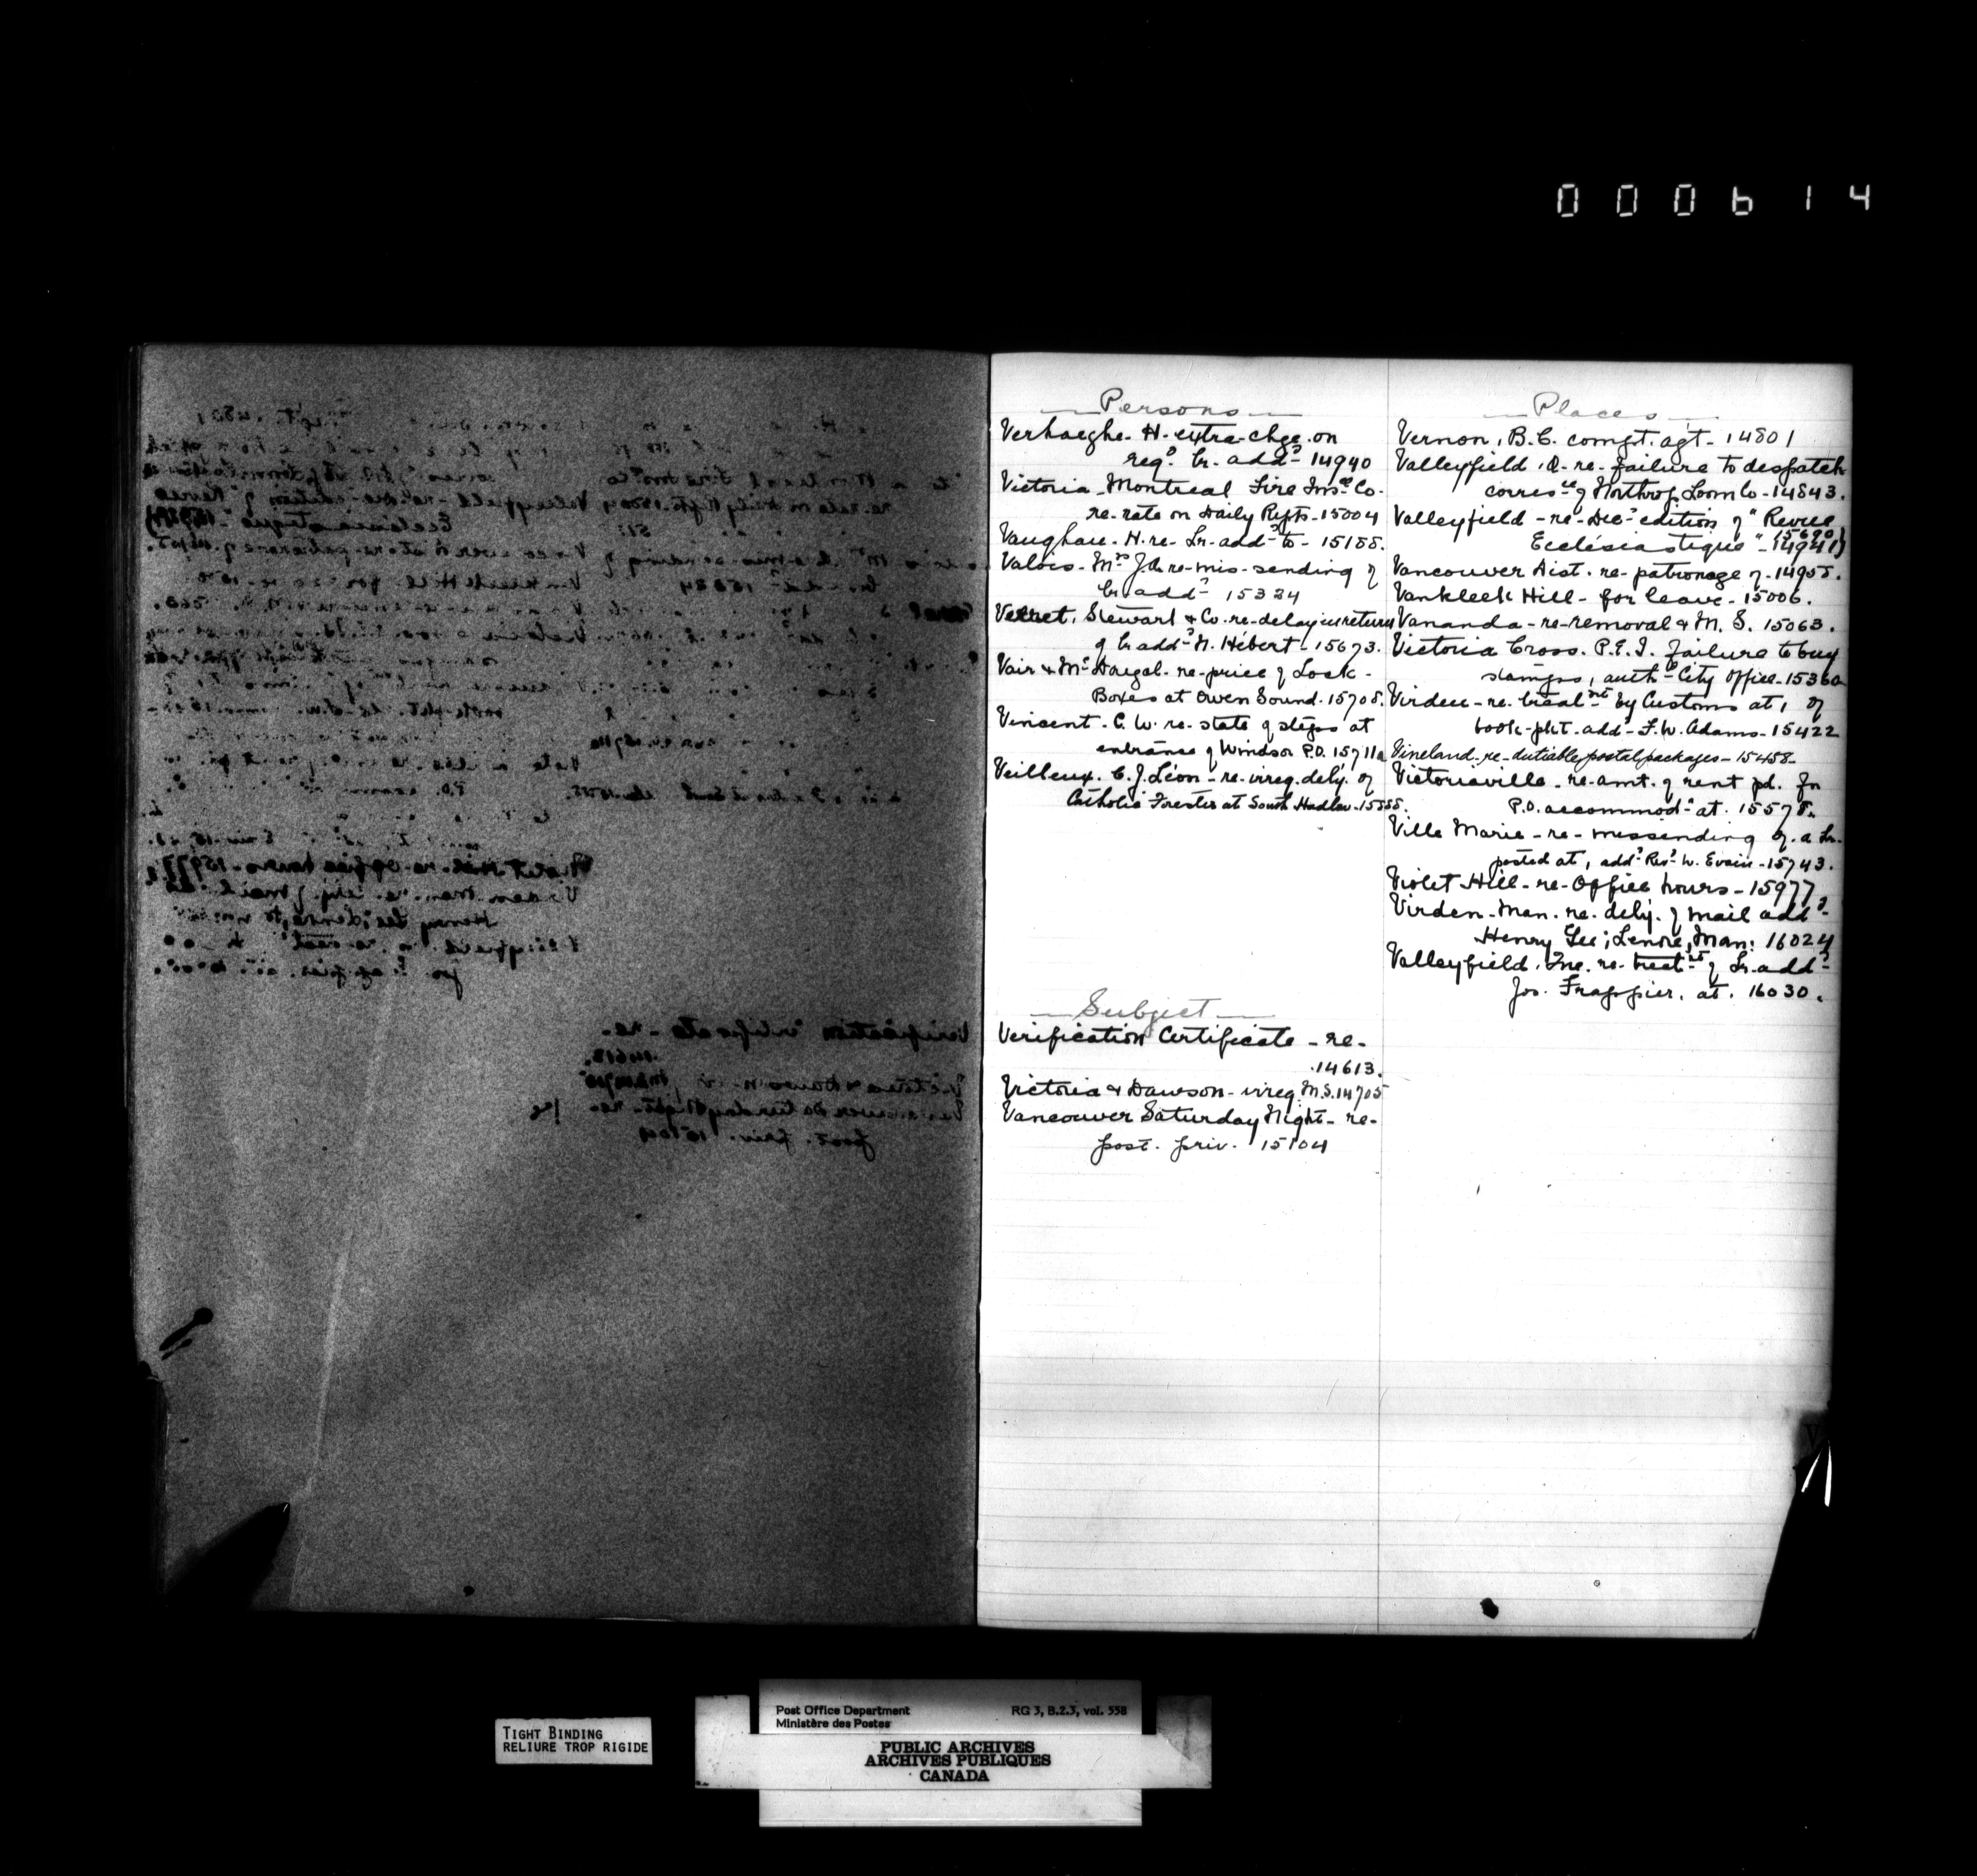 000614
Persons
Verhaeghe- H- extra-chge. on
regd. lr. addd 14940
Victoria-Montreal Fire Insce Co-
re-rate on Daily Repts-15004
Vaughan-H-re-Lr-addd to-15155.
Valois-Mrs J.-re-mis-sending of
lr addd 15324
Verret, Stewart & Co-re-delay in return
of lr addd N. Hébert-15673.
Vair & McDougal-re-price of Lock-
Boxes at Owen Sound-15705.
Vincent-C. W. re-state of steps at
entrance of Windsor P.O. 15711a
Veilleux. C. J. Léon-re-irreg. dely. of
Catholic Forester at South Hadlow-15555.
Subject
Verification Certificate-re-
14613.
Victoria & Dawson-irreg. M.S. 14705
Vancouver Saturday Night-re-
post. priv. 15104
Places
Vernon, B.C. compt. agt-14801
Valleyfield, Q-re-failure to despatch
corresce of Northrop Loom Co-14843.
Valleyfield-re-Dec. edition of "Revue
15690)
Ecclésiastique"-14941)
Vancouver Dist. re-patronage of-14955.
Vankleek Hill-for leave-15006.
Vananda-re-removal & M. S. 15063.
Victoria Cross. P.E.I. failure to buy
stamps, authd City Office-15360
Virden-re-treatmt by Customs at, of
book-pkt-addd F. W. Adams-15422
Vineland-re-dutiable postal packages-15458-
Victoriaville-re-amt. of rent pd. for
P.O. accommodn at. 15575.
Ville Marie-re-missending of a Lr.
posted at, addd Revd W. Evain-15743.
Violet Hill-re-Office hours-15977.
Virden-Man. re-dely. of mail addd
Henry Lee; Lenore, Man: 16024
Valleyfield. Que. re-treatmt of Lr. addd
Jos. Frappier, at. 16030.
V
TIGHT BINDING
RELIURE TROP RIGIDE
Post Office Department RG 3, B.2.3, vol. 558
Ministère des Postes
PUBLIC ARCHIVES
ARCHIVES PUBLIQUES
CANADA